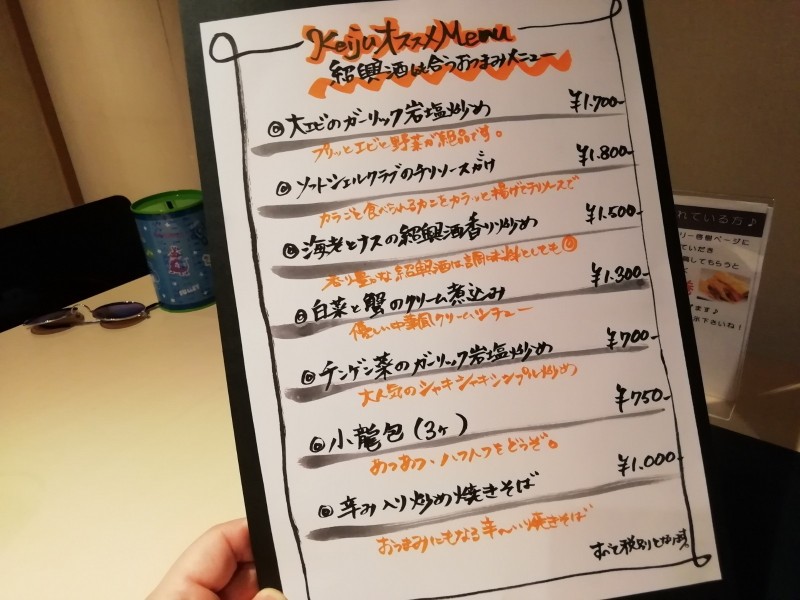 KeijuオススメMenu
紹興酒に合うおつまみメニュー
◎大エビのガーリック岩塩炒め ¥1.700-
プリッとエビと野菜が絶品です。
◎ソフトシェルクラブのチリソースがけ ¥1.800-
カラごと食べられるカニをカラッと揚げてチリソースで
◎海老とナスの紹興酒香り炒め ¥1.500-
香り豊かな紹興酒は調味料としても◎
◎白菜と蟹のクリーム煮込み ¥1.300-
優しい中華風クリームシチュー
◎チンゲン菜のガーリック岩塩炒め ¥700-
大人気のシャキシャキシンプル炒め
◎小龍包(3ヶ) ¥750-
あつあつ、ハフハフをどうぞ。
◎辛み入り炒め焼きそば ¥1.000-
おつまみにもなる辛〜い焼きそば
すべて税別となります
れている方♪